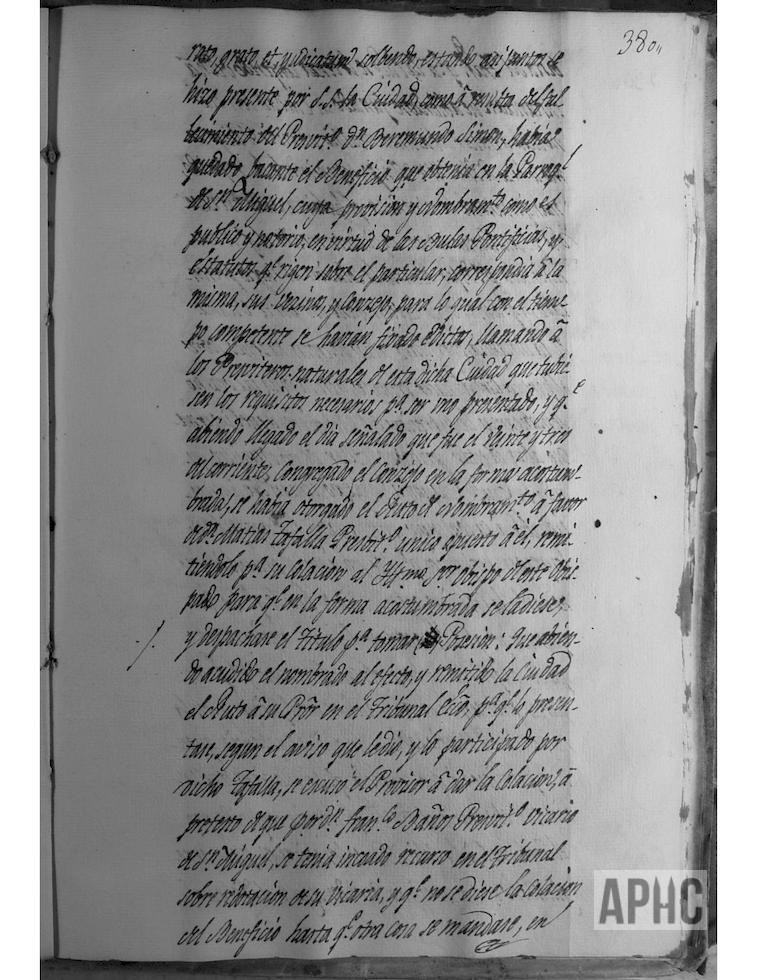 380,,
rato, grato, et, yudicatum solbendo, estando asi juntos se
hizo presente por S.S. la Ciudad, como â resulta del fal
lecimiento del Presvit.º dn. Beremundo Simon, habia
quedado bacante el Beneficio que obtenia en la Parroq.l
de Sn. Miguel, cuya provision y nombram.to como es
publico y notorio, en virtud de las Bulas Pontificias, y
estatutos q.e rigen sobre el particular, correspondia â la
misma, sus vecinos, y Conzejo, para lo qual con el tiem-
po competente se havian fixado edictos, llamando â
los Presviteros naturales de esta dicha Ciudad que tubie-
sen los requisitos necesarios p.a ser uno presentado, y q.e
abiendo llegado el dia señalado que fue el veinte y tres
del corriente, congregado el Conzejo en la forma acostum-
brada, se habia otorgado el Auto de Nombram.to â favor
de dn. Matias Tafalla Presvit.º unico opuesto â el, remi-
tiendole p.a su Colacion al Yll.mo Sor. Obispo de este Obis-
pado para q.e en la forma acostumbrada se la diese,
y despachase el Titulo p.a tomar Posesion: Que abien-
do acudido el nombrado al efecto, y remitido la Ciudad
el Auto â su Pror. en el Tribunal Ecco. p.a q.e lo presen-
tase, segun el aviso que le dio, y lo participado por
dicho Tafalla, se escusó el Provisor â dar la Colacion, â
pretexto de que por dn. Fran.co Baños Presvit.º vicario
de Sn. Miguel, se tenia incoado recurso en el Tribunal
sobre redotacion de su vicaria, y q.e no se diese la Colacion
del Beneficio hasta q.e otra cosa se mandase, en
APHC